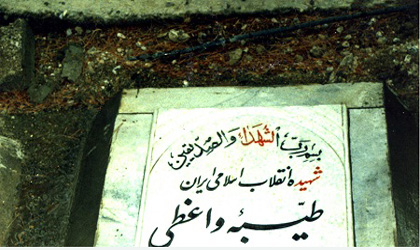 بسم رب الشهداء والصدیقین
شهیدهٔ انقلاب اسلامی ایران
طیبهٔ واعظی